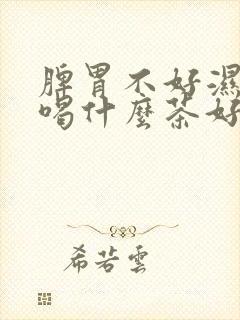 脾胃不好濕
喝什麼茶好
希若雲